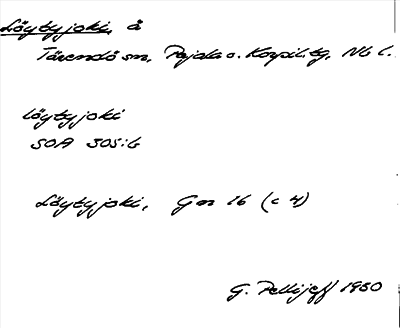 Löytyjoki, å
Tärendö sn, Pajala o. Korpil. tg, Nb l.
löytyjoki
SOA 305:6
Löytyjoki, Gn 16 (c 4)
G. Pellijeff 1950